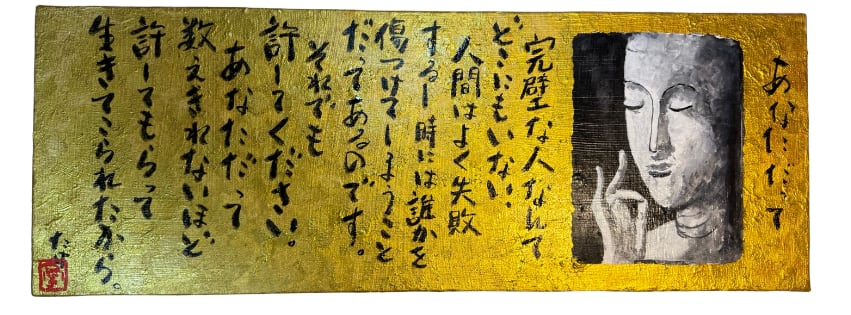 あなただって
完璧な人なんて
どこにもいない。
人間はよく失敗
するし時には誰かを
傷つけてしまうこと
だってあるのです。
それでも
許してください。
あなただって
数えきれないほど
許してもらって
生きてこられたから。